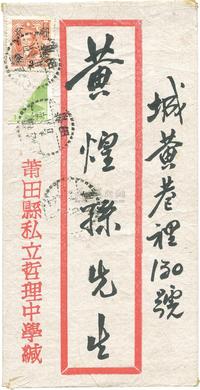 城黃巷裡130號
黃煌孫先生
莆田縣私立哲理中學緘